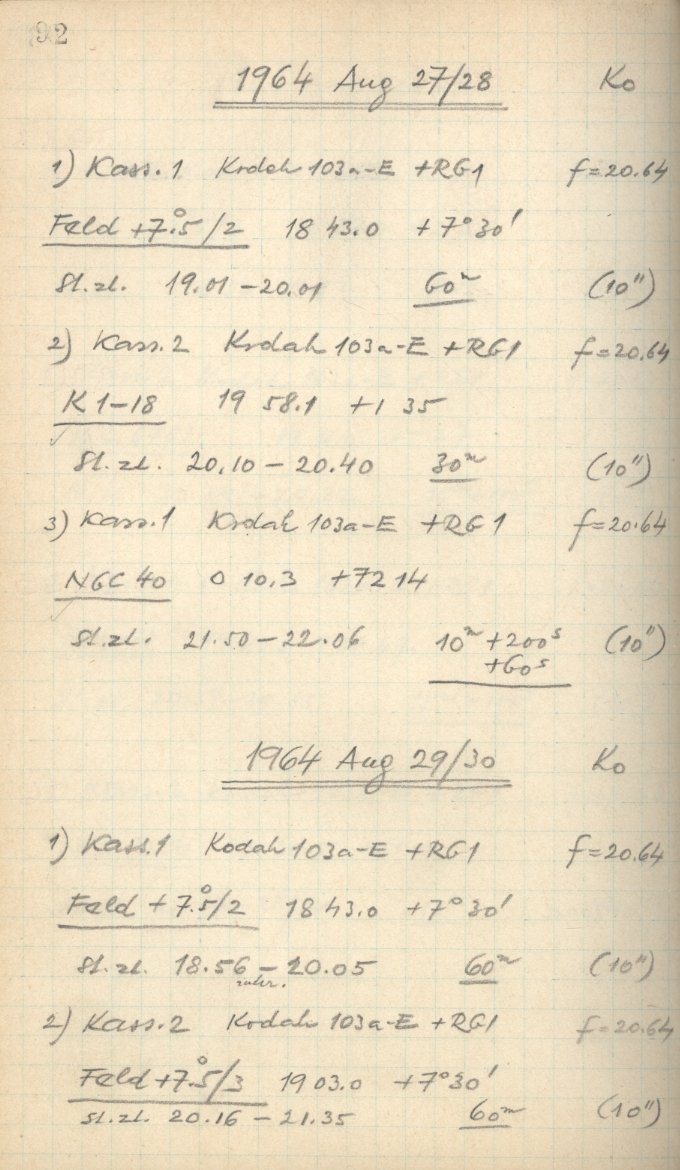 92
1964 Aug 27/28 Ko
1) Kass. 1 Kodak 103a-E +RG1 f=20.64
Feld +7°.5/2 18 43.0 +7°30'
St.zt. 19.01 – 20.01 60m (10")
2) Kass. 2 Kodak 103a-E +RG1 f=20.64
K 1-18 19 58.1 +1 35
St.zt. 20.10 – 20.40 30m (10")
3) Kass. 1 Kodak 103a-E +RG1 f=20.64
NGC 40 0 10.3 +72 14
St.zt. 21.50 – 22.06 10m +200s (10")
+60s
1964 Aug 29/30 Ko
1) Kass. 1 Kodak 103a-E +RG1 f=20.64
Feld +7°.5/2 18 43.0 +7°30'
St.zt. 18.56 – 20.05 60m (10")
2) Kass. 2 Kodak 103a-E +RG1 f=20.64
Feld +7°.5/3 19 03.0 +7°30'
St.zt. 20.16 – 21.35 60m (10")